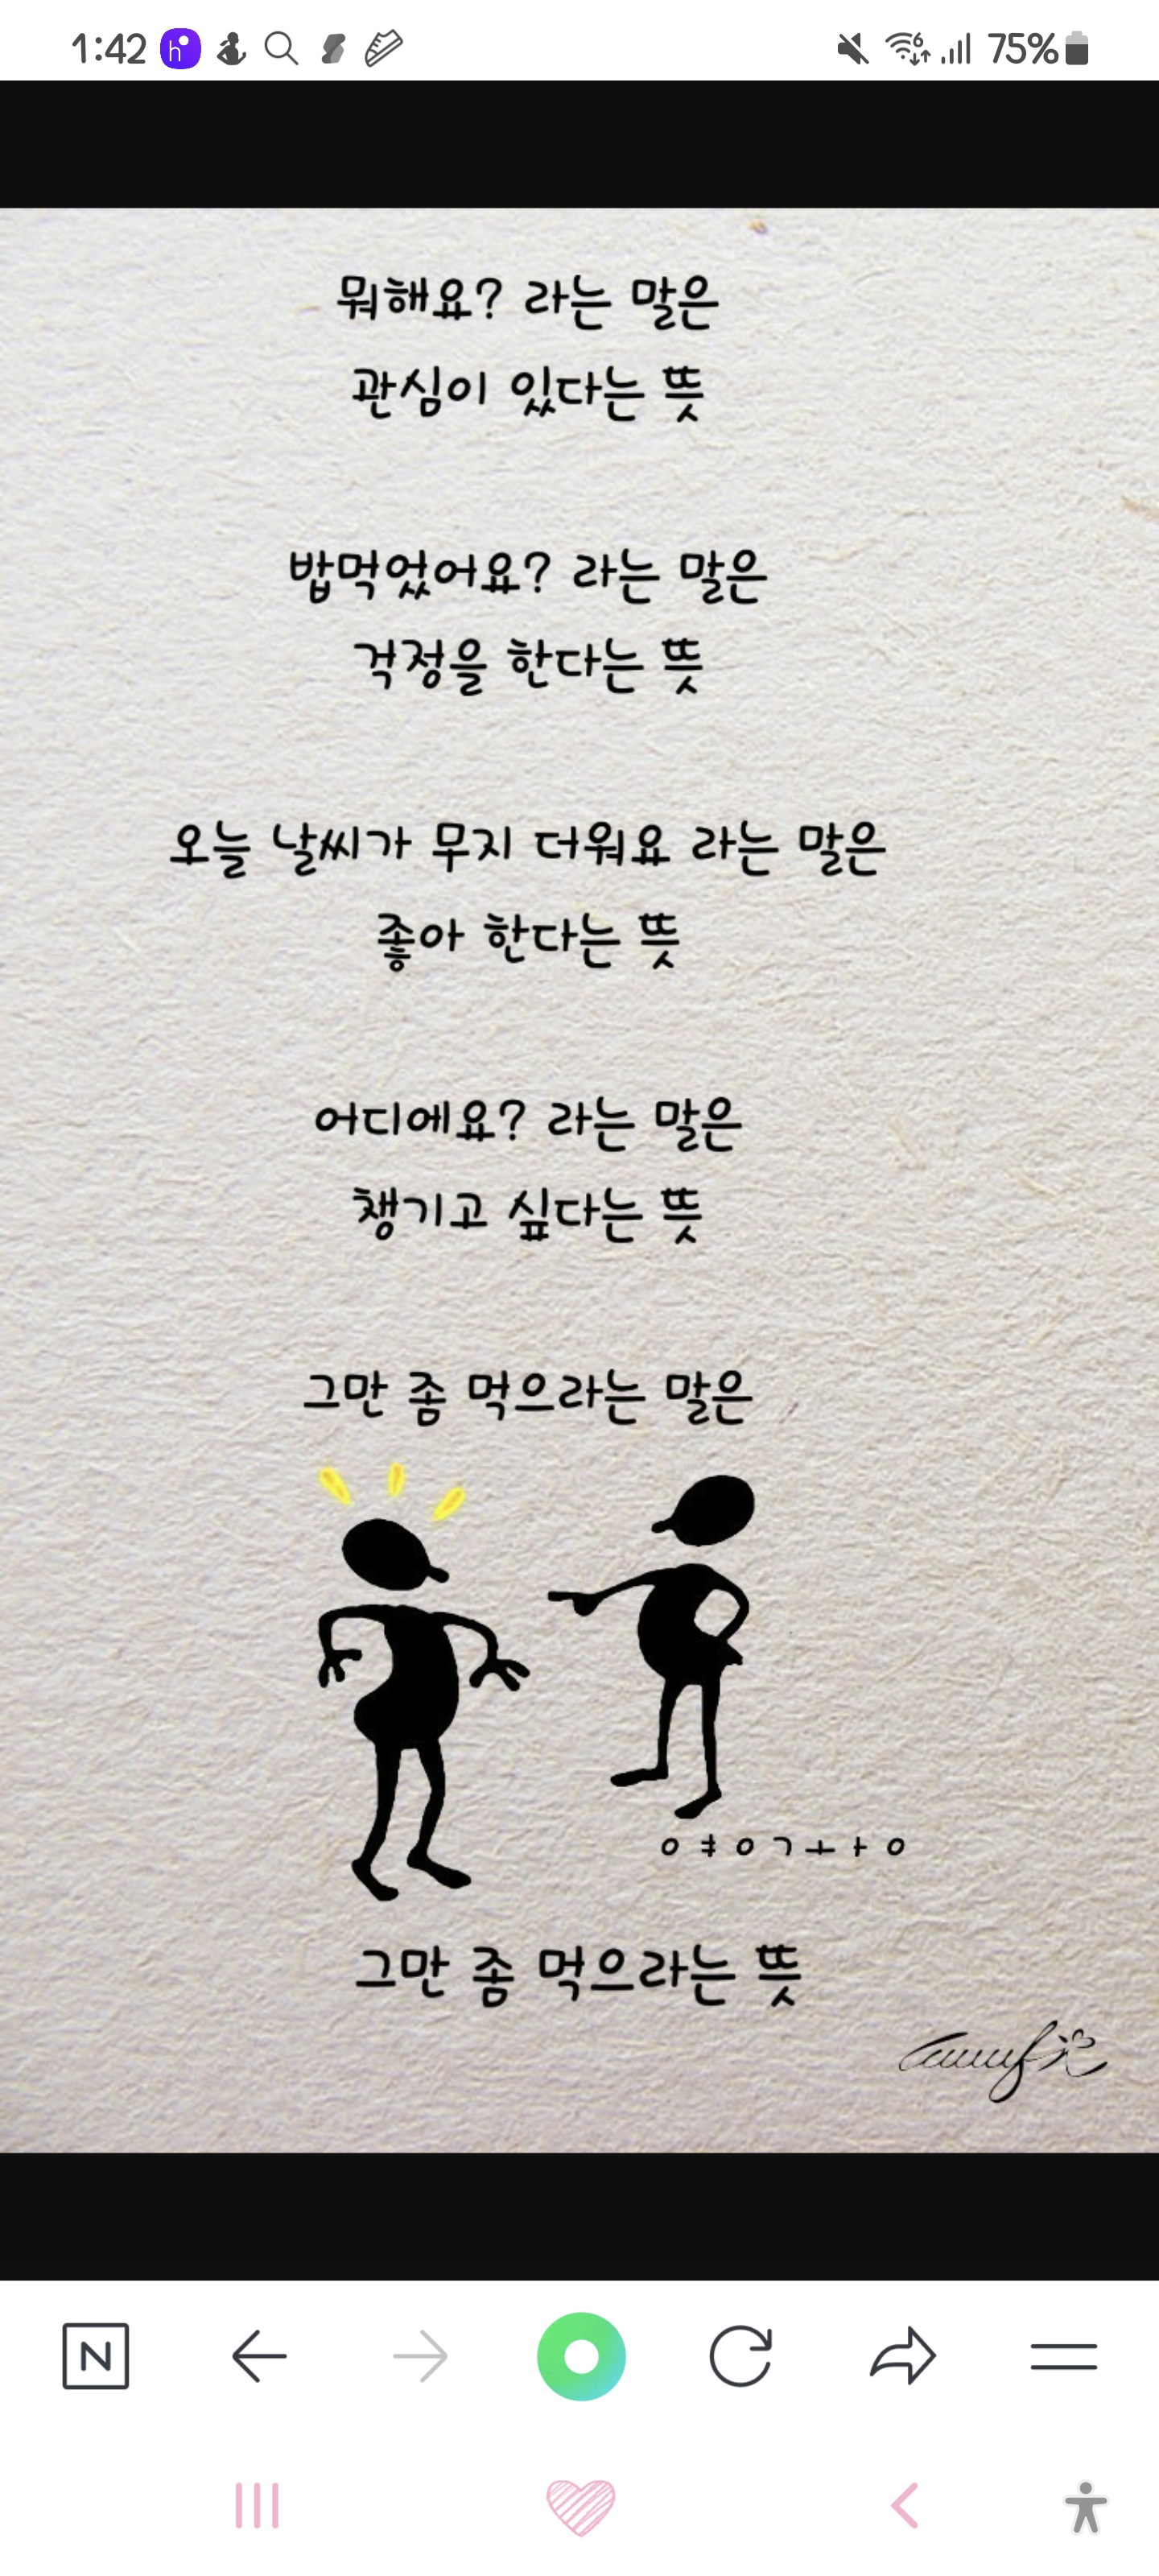 1:42
75%
뭐해요? 라는 말은
관심이 있다는 뜻
밥먹었어요? 라는 말은
걱정을 한다는 뜻
오늘 날씨가 무지 더워요 라는 말은
좋아 한다는 뜻
어디에요? 라는 말은
챙기고 싶다는 뜻
그만 좀 먹으라는 말은
ㅇㅕㅇㄱㅗㅏㅇ
그만 좀 먹으라는 뜻
N